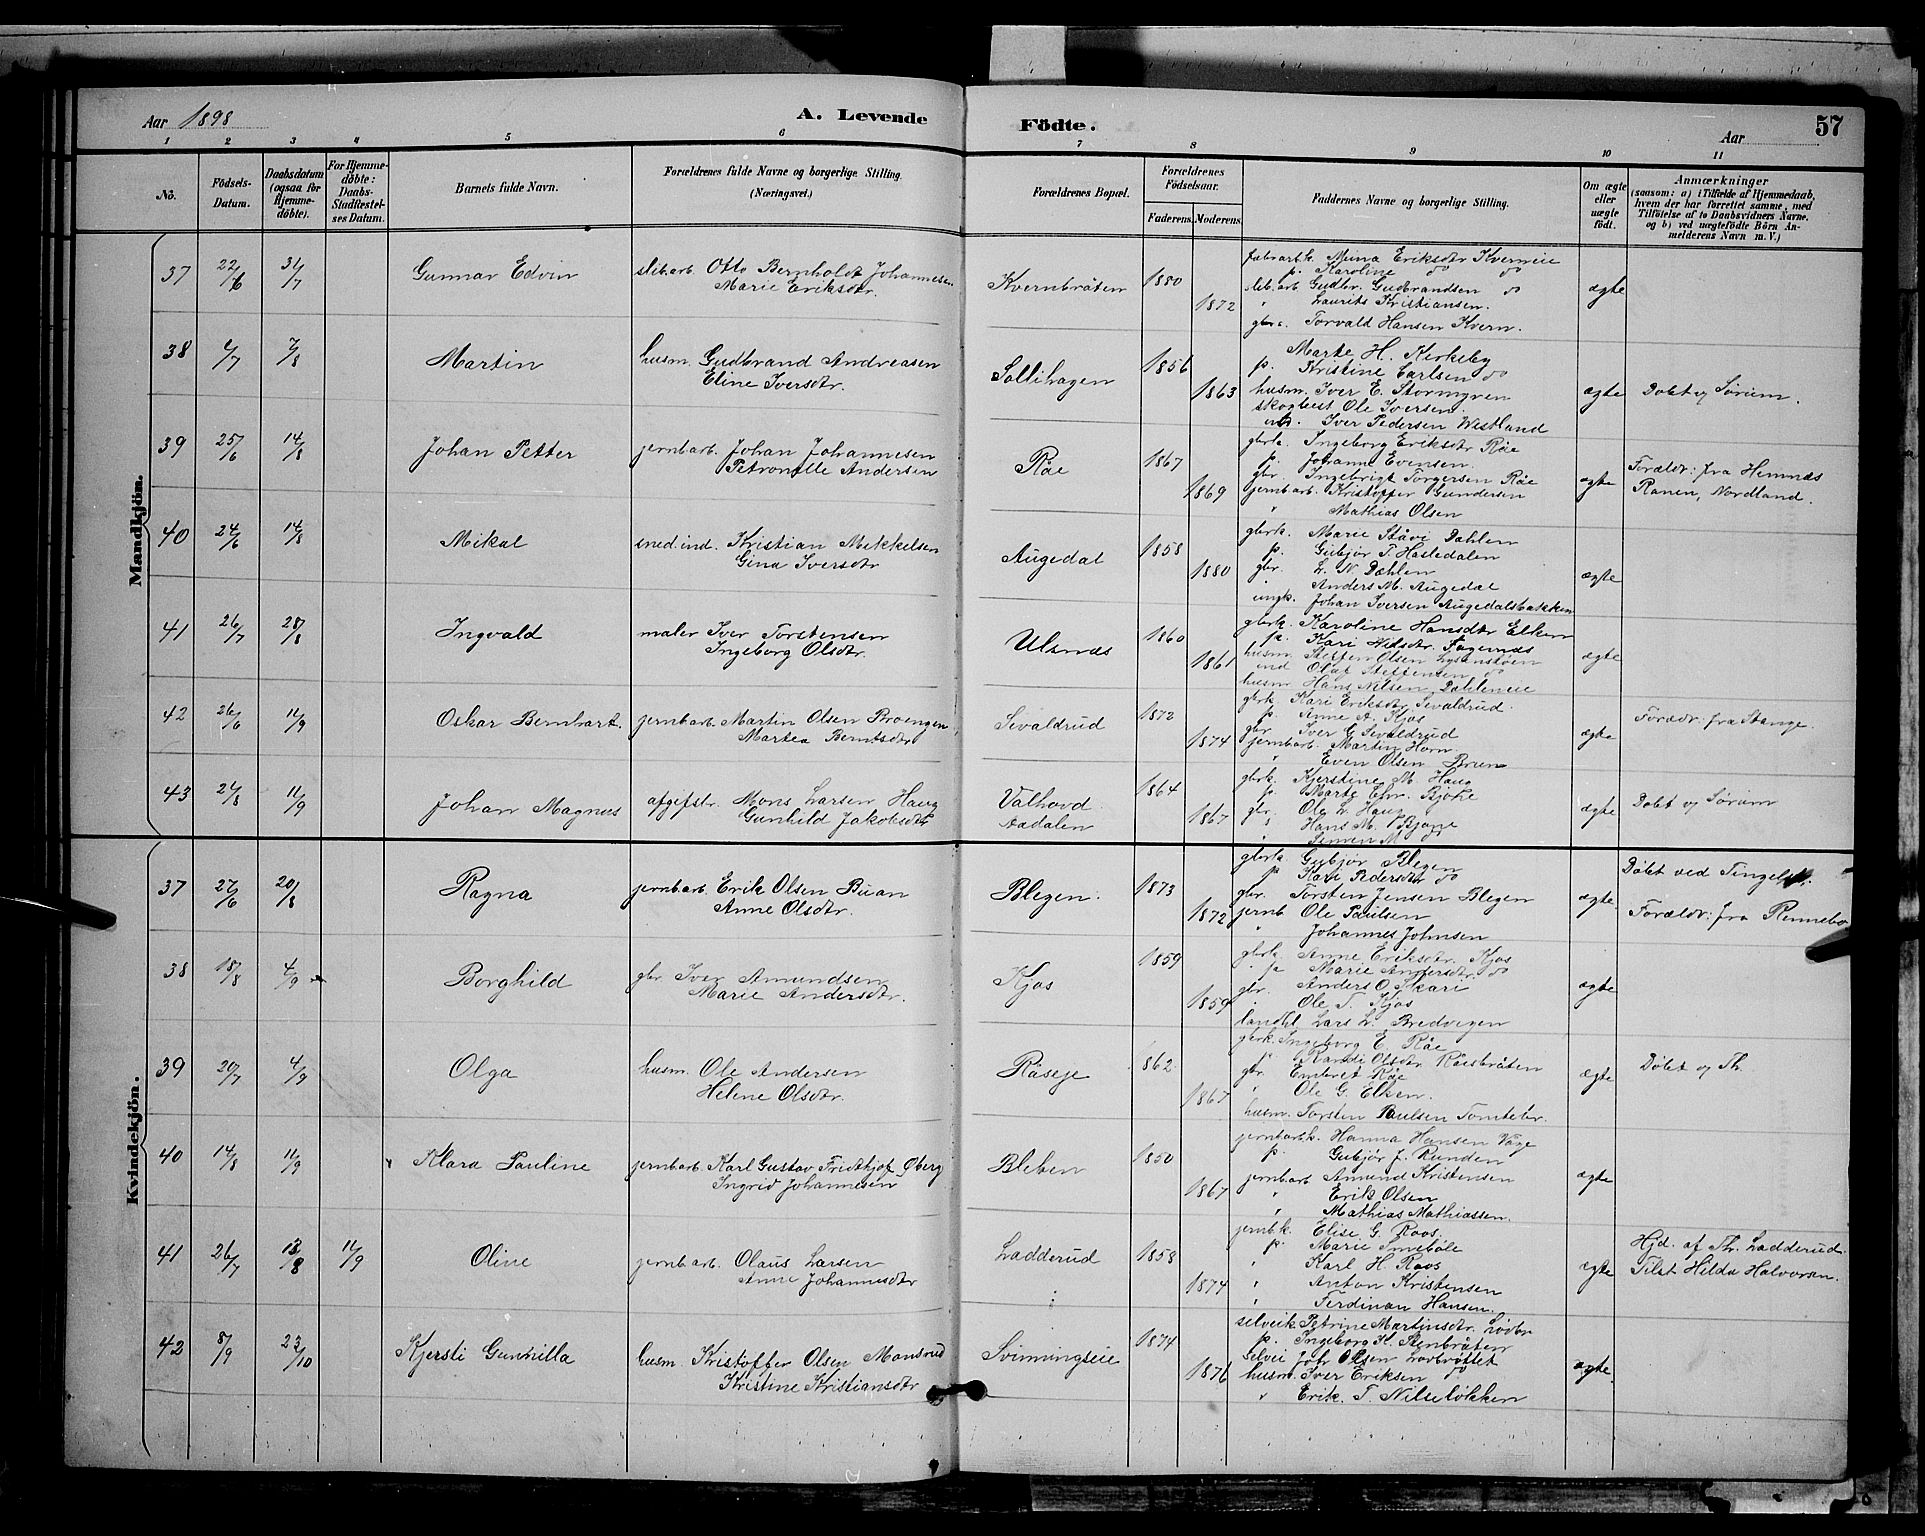 Aar 1898
A. Levende
Födte.
Aar
57
1 2 3 4 5 6 7 8 9 10 11
No.
Födsels-Datum.
Daabsdatum (ogsaa for Hjemmedöbte).
For Hjemmedöbte: Daabs-Stadfæstelses Datum.
Barnets fulde Navn.
Forældrenes fulde Navne og borgerlige Stilling. (Næringsvei.)
Forældrenes Bopæl.
Forældrenes Födselsaar.
Faderens. Moderens.
Faddernes Navne og borgerlige Stilling.
Om ægte eller uægte födt.
Anmærkninger
(saasom: a) i Tilfælde af Hjemmedaab, hvem der har forrettet samme, med Tilföielse af to Daabsvidners Navne. og b) ved uægtefödte Börn Anmelderens Navn m. V.)
Mandkjön.
37 22/6 31/7 Gunnar Edvin slibarb. Otto Bernholdt Johannesen
Marie Eriksdtr.
Kvernbråten 1880 1872
fabrarbk. Mina Eriksdtr Kverneie
p. Karoline do do
slib.arb Gudbr. Gudbrandsen do
" Laurits Kristiansen.
Torvald Hansen Kvern.
ægte
38 /7 7/8 Martin husm. Gudbrand Andreasen
Eline Iversdtr.
Sollihagen 1856 1863
Marte H. Kirkeby
p. Kristine Carlsen do
husm. Iver E. Stormyren
Ole Iversen.
Iver Pedersen Westland
ægte Döbt v/ Sörum.
39 25/6 14/8 Johan Petter jernbarb. Johan Johannesen
Petronelle Andersen
Råe 1867 1869
gbrk. Ingeborg Eriksdtr Råe
p. Johanne Evensen.
gbr. Ingebrigt Torgersen Råe
jernbarb. Kristoffer Gundersen
" Mathias Olsen
ægte Forældr: fra Hemnæs
Ranen, Nordland.
40 24/6 14/8 Mikal sned.ind. Kristian Mikkelsen
Gina Iversdtr
Augedal 1858 1880
gbrk. Marie Dæhlen
p. Gubjör T. Hasledalen
gbr. L. N. Dæhlen
" Anders M. Augedal
ungk. Johan Iversen Augedalsbakken
ægte
41 26/7 28/8 Ingvald maler Iver Torstensen
Ingeborg Olsdtr.
Ulsnæs 1860 1861
gbrk. Karoline Hansdtr Elken
p. Kari Nilsdtr. Fagernæs
husm. Steffen Olsen
ind Olaf Steffensen do
husm Hans Nilsen Dæhleneie
ægte
42 26/6 11/9 Oskar Bernhart. jernbarb. Martin Olsen Broengen
Martea Berntsdtr
Sevaldrud 1872 1874
gbrk. Kari Eriksdtr Sevaldrud.
p. Anne A. Kjos
gbr. Iver G. Sevaldrud
jernbarb. Martin Horn.
" Even Olsen Brun
ægte Forældr: fra Stange.
43 24/8 11/9 Johan Magnus afgifstr. Mons Larsen Haug
Gunhild Jakobsdtr
Valhovd
Aadalen 1864 1867
gbrk. Kjerstine M. Haug
p. Marte Ehr. Bjöke
gbr. Ole L. Haug
" Hans M. Bjöne
" Simen M do
ægte Döbt v/ Sörum
Kvindekjön.
37 27/6 20/8 Ragna jernbarb. Erik Olsen Buan
Anne Olsdtr.
Blegen. 1873 1872
gbrk Gubjör Blegen
p Kari Pedersdtr do
gbr. Torsten Jensen Blegen
jernb Ole Paulsen
" Johannes Johnsen
ægte Döbt ved Tingelst.
Forældr: fra Rennebo
38 18/8 4/9 Borghild gbr Iver Amundsen
Marie Andersdtr.
Kjos 1859 1859
gbrk Anne Eriksdtr. Kjos
p Marie Andersdtr. do
gbr. Anders O. Skari
Ole T. Kjos
landhl Lars L. Bredvigen
ægte
39 20/7 4/9 Olga husm. Ole Andersen
Helene Olsdtr.
Råseje 862 1867
gbrk. Ingeborg E. Råe
p. Randi Olsdtr. Råesbråten
gbr. Embret Råe
" Ole G. Elken.
husm. Torsten Paulsen Tomtebr.
ægte Döbt v/ Th.
40 14/8 11/9 Klara Pauline jernbarb. Karl Gustav Fridthjof Öberg
Ingrid Johannesen
Bleken 1850 1867
jernbarbk. Hanna Hansen Våge
p. Gubjör J. Runden
jernbarb Amund Kristensen
" Erik Olsen
" Mathias Mathiassen.
ægte
41 26/7 13/8 11/9 Oline jernbarb. Olaus Larsen
Anne Johannesdtr
Ladderud 1858 1874
jernbk. Elise G. Roos.
p. Marie Smeböle
" Karl H. Roos
" Anton Kristensen
" Ferdinan Hansen.
ægte Hjd. af Th. Ladderud.
Tilst Hilda Halvorsen.
42 8/9 23/10 Kjersti Gunhilla husm. Kristoffer Olsen Monsrud
Kristine Kristiansdtr
Svinningseie 1874 1876
selveik Petrine Martinsdtr.
p. Ingeborg H. Stenbråten
selvei Joh Olsen
husm. Iver Eriksen do
" Erik. T. Nilselökken
ægte.